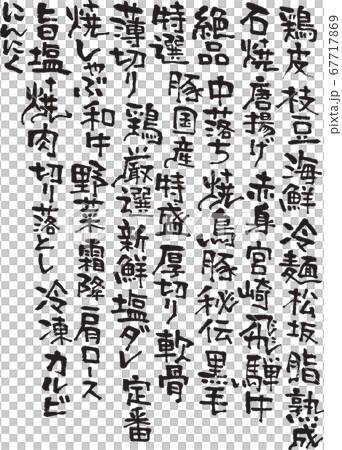 鶏皮 枝豆 海鮮 冷麺 松坂 脂 熟成
石焼 唐揚げ 赤身 宮崎 飛騨牛
絶品 中落ち 焼鳥 豚 秘伝 黒毛
特選 豚 国産 特盛 厚切り 軟骨
薄切り 鶏 厳選 新鮮 塩ダレ 定番
焼しゃぶ 和牛 野菜 霜降 肩ロース
旨塩 焼肉 切り落とし 冷凍 カルビ
にんにく
pixta.jp - 67717869